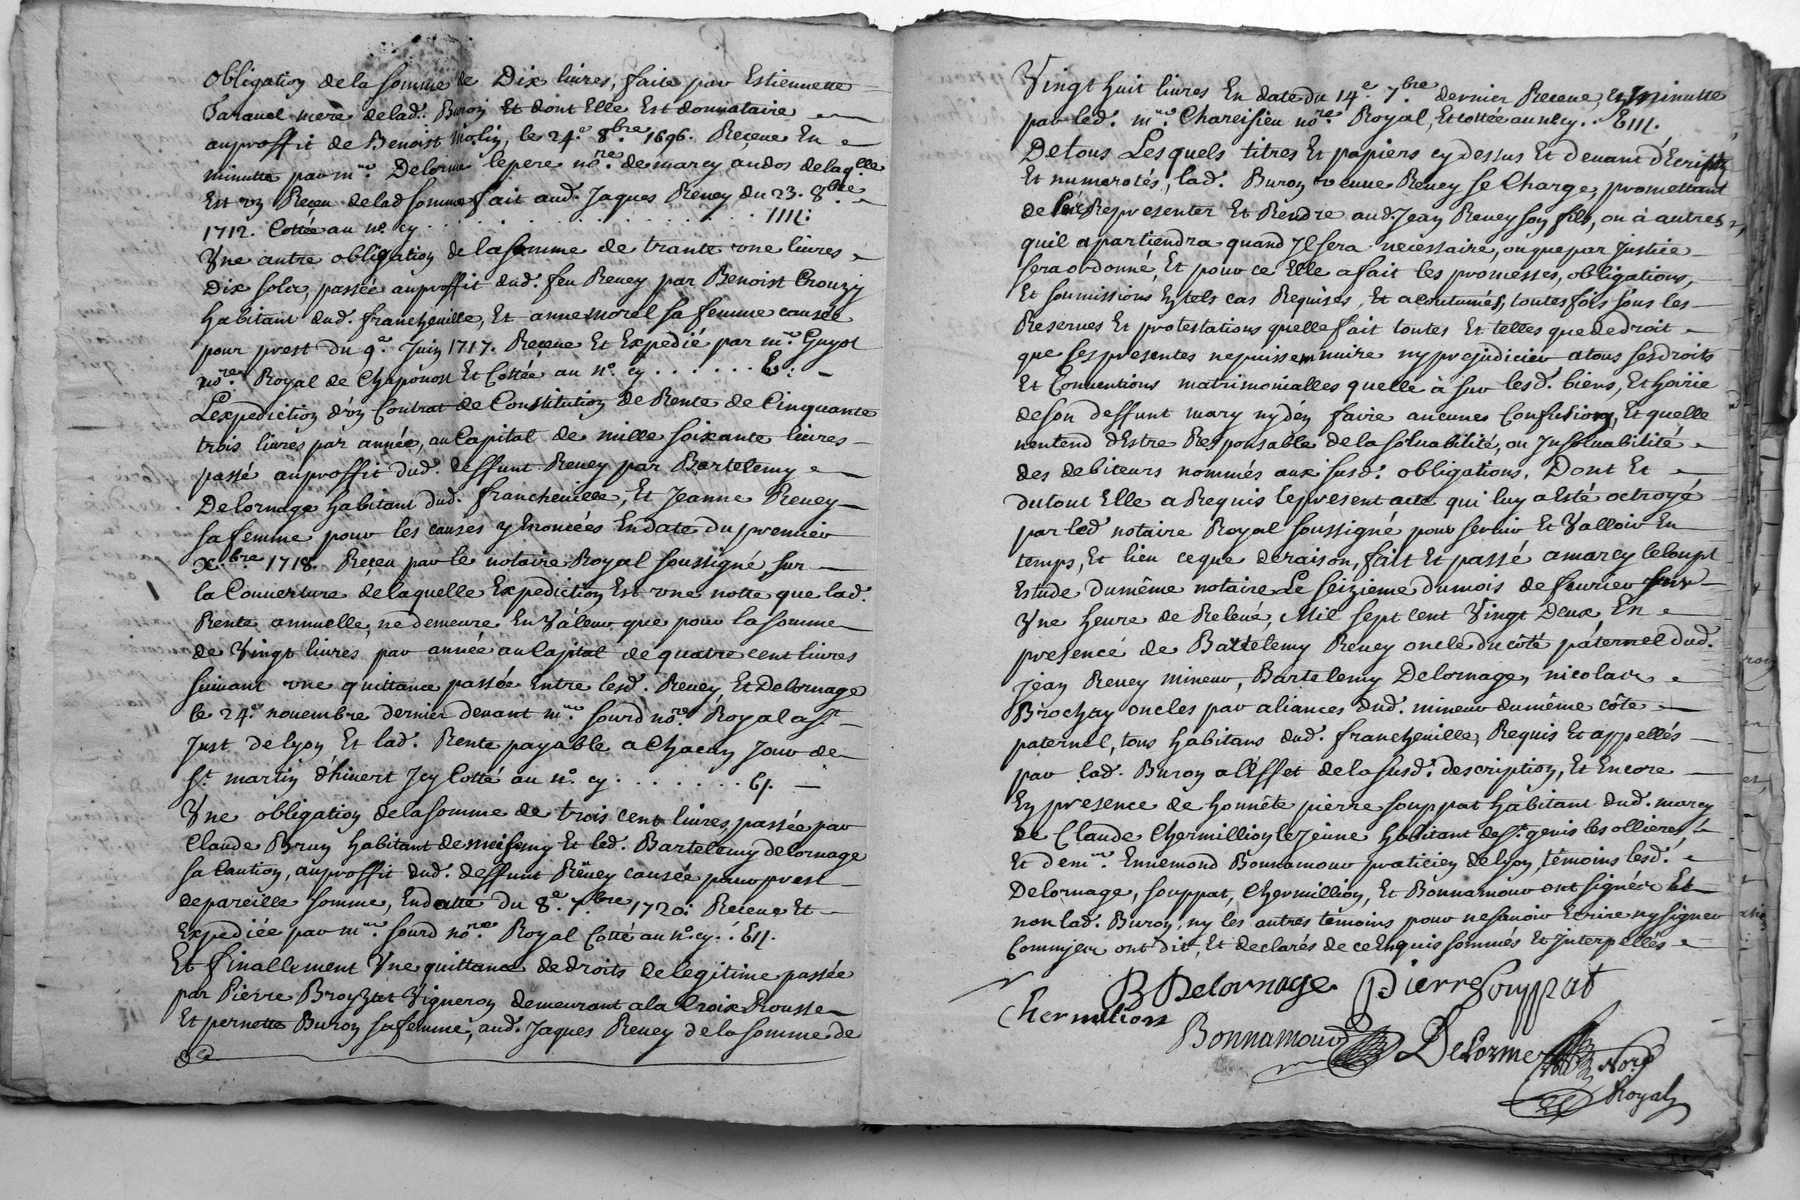 Obligation de la somme de Dix livres, faite par Estiennette
mere de lad. Buron Et dont Elle Est donnataire
au proffit de Benoist Molin, le 24.e 8.bre 1696. Receue En
minutte par m.re Delorme le pere no.re de marcy au dos de laq.lle
Est vn Receu de lad somme fait aud. Jaques Reney du 23. 8.bre
1712. Cottée au n.o cy . . . . . . . . . . IIII.
Vne autre obligation de la somme de trante vne livres
Dix solz, passée au proffit dud. feu Reney par Benoist Crouzy
habitant dud. francheville, Et anne morel sa femme causée
pour prest du 9.e Juin 1717. Receue Et Expedié par m.re Guyot
no.re Royal de Chaponost Et Cottée au n.o cy . . . . . . E.
L'expedition d'vn Contrat de Constitution de Rente de Cinquante
trois livres par année, au Capital de mille soixante livres
passé au proffit dud. deffunt Reney par Bartelemy
Delornage habitant dud. francheville, Et Jeanne Reney
sa femme pour les causes y Enoncées En date du premier
X.bre 1718. Receu par le notaire Royal soussigné, sur
la Couverture de laquelle Expedition Est vne notte que lad.
Rente annuelle, ne demeure En Valeur que pour la somme
de Vingt livres par année au Capital de quatre cent livres
suivant vne quittance passée Entre lesd. Reney Et Delornage
le 24.e novembre dernier devant m.re sourd no.re Royal a St
Just de lyon Et lad. Rente payable a Chacun Jour de
St. martin d'hivert Icy Cotté au n.o cy . . . . . . . EI.
Vne obligation de la somme de trois cent livres, passée par
Claude Brun habitant de Et led. Bartelemy delornage
sa Caution, au proffit dud. deffunt Reney causée pour prest
de pareille somme, En datte du 8.e 7.bre 1720. Receue Et
Expediée par m.re sourd no.re Royal Cotté au n.o cy . . EII.
Et finallement Vne quittance de droits de legitime passée
par Pierre Vigneron demeurant a la Croix Rousse
Et pernette Buron sa femme, aud. Jaques Reney de la somme de
Vingt huit livres En date du 14.e 7.bre dernier Receue, En minutte
par led. m.re Chareisieu no.re Royal, Et cottée au n.o cy . . EIII.
De tous Lesquels titres Et papiers cy dessus Et devant d'Ecrits
Et numerotés, lad. Buron veuve Reney se Charge, promettant
de les Representer Et Rendre aud. Jean Reney son fils, ou à autres
quil apartiendra quand Il sera necessaire, ou que par Justice
sera ordonné, Et pour ce Elle a fait les promesses, obligations,
Et soumissions En tels cas Requises, Et acoutumés, toutes fois sous les
Reserves Et protestations quelle fait toutes Et telles que de droit
que ses presentes ne puissent nuire ny prejudicier a tous ses droits
Et Conventions matrimonialles quelle à sur lesd. biens, Et hoirie
de son deffunt mary ny d'en faire aucunes Confusion, Et quelle
nentend d'Estre Responsable de la solvabilité, ou Insolvabilité
des debiteurs nommés aux susd. obligations. Dont Et
du tout Elle a Requis le present acte qui luy a Esté octroyé
par led notaire Royal soussigné pour servir Et Valloir En
temps, Et lieu ce que de raison, fait Et passé a marcy le loup
Estude du même notaire Le seizieme du mois de fevrier sur
Vne heure de Relevé, Mil sept cent Vingt Deux En
presence de Bartelemy Reney oncle du côté paternel dud.
Jean Reney mineur, Bartelemy Delornage, nicolas
Brochay oncles par aliances dud. mineur du même côté
paternel, tous habitans dud. francheville, Requis Et appellés
par lad. Buron a l'Effet de la susd. description, Et Encore
En presence de honnête pierre souppat habitant dud. marcy
de Claude Chermillion le Jeune habitant de St. genis les ollieres
Et de m.re Ennemond Bonnamour praticien de lyon, témoins lesd.
Delornage, souppat, Chermillion, Et Bonnamour ont signés Et
non lad. Buron, ny les autres temoins pour ne savoir Ecrire ny signer
Comme ont dit, Et declarés de ce Enquis sommés Et Interpellés
B Delornage Pierre Souppat
Chermilion
Bonnamour Delorme Nore
Royal